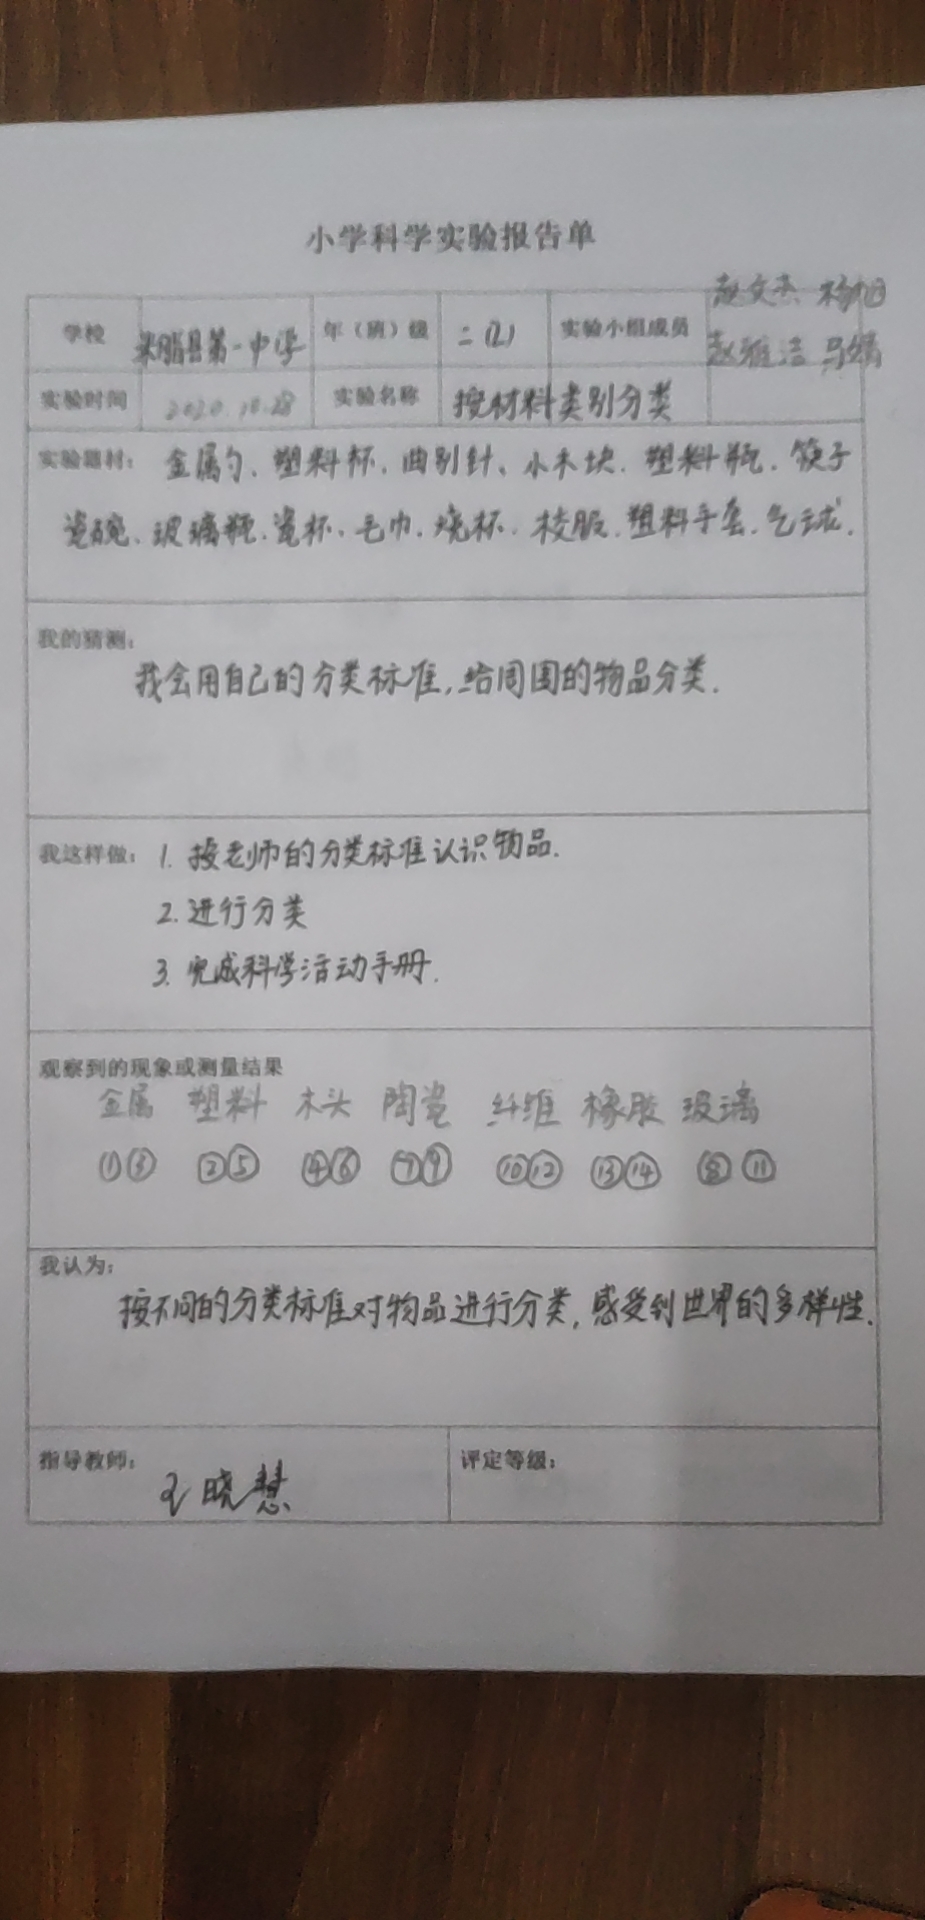 小学科学实验报告单
赵文杰
学校 米脂县第一中学 年(班)级 二(2) 实验小组成员 赵雅洁 马娟
实验时间 2020.10.28 实验名称 按材料类别分类
实验器材: 金属勺、塑料杯、曲别针、小木块、塑料瓶、筷子
瓷碗、玻璃瓶、瓷杯、毛巾、烧杯、校服、塑料手套、气球.
我的猜测:
我会用自己的分类标准,给周围的物品分类.
我这样做: 1. 按老师的分类标准认识物品.
2. 进行分类
3. 完成科学活动手册.
观察到的现象或测量结果
金属 塑料 木头 陶瓷 纤维 橡胶 玻璃
①③ ②⑤ ④⑥ ⑦⑨ ⑩⑫ ⑬⑭ ⑧⑪
我认为:
按不同的分类标准对物品进行分类,感受到世界的多样性.
指导教师: 王晓慧 评定等级: